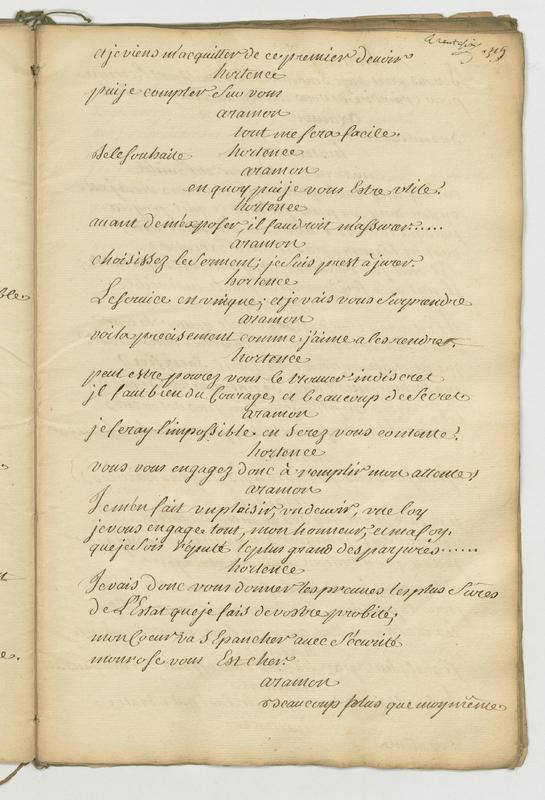 et je viens m'acquitter de ce premier devoir
hortence
puije compter sur vous
aramon
tout me sera facile.
hortence
je le souhaite
aramon
en quoy puije vous Estre vtile?
hortence
auant de m'exposer, il faudroit m'assurer.....
aramon
choisissez le serment; je suis prest à jurer.
hortence
Le seruice est vnique; et je vais vous surprendre
aramon
voila precisement comme j'aime a les rendre.
hortence
peut estre pourez vous le trouuer indiscret
jl faut bien du Courage, et beaucoup de Secret
aramon
je feray l'impossible en serez vous contente?
hortence
vous vous engagez donc à remplir mon attente?
aramon
Je m'en fait vn plaisir, vn deuoir, vne loy
je vous engage tout, mon honneur, et ma foy.
que je sois réputé le plus grand des parjures......
hortence
Je vais donc vous donner les preuues les plus Sûres
de L'Estat que je fais de vostre probité;
mon Coeur va s'Epancher auec Sécurité
monrose vous Est cher.
aramon
beaucoup plus que moy même